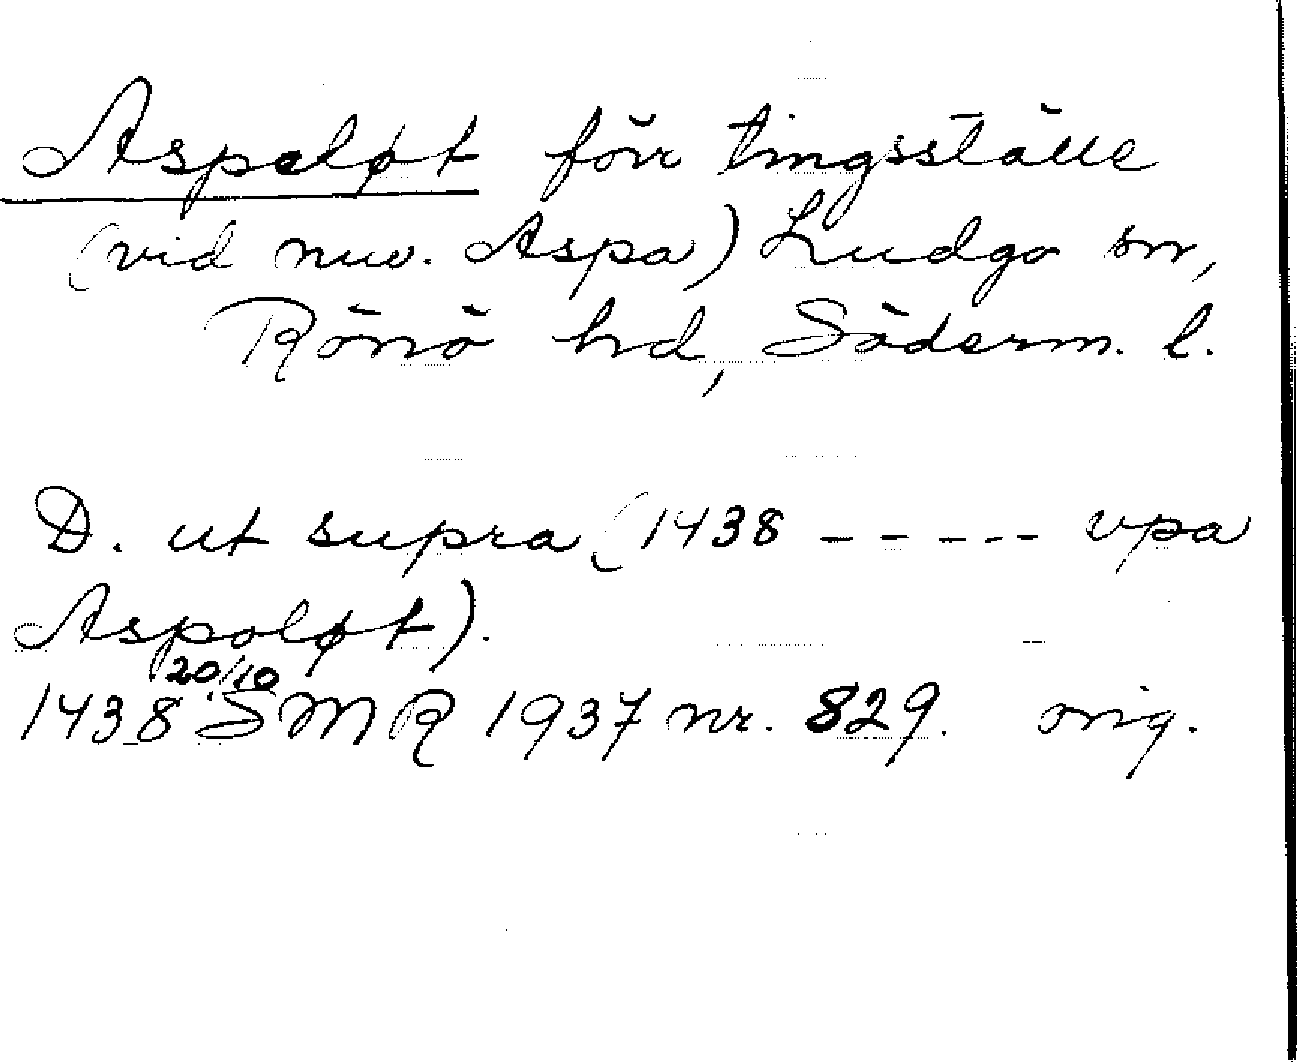 Aspeløt förr tingsställe
(vid nuv. Aspa) Ludgo sn,
Rönö hd, Söderm. l.
D. ut supra (1438 ----- vpa
Aspoløt).
1438 20/10 SMR 1937 nr. 829. orig.